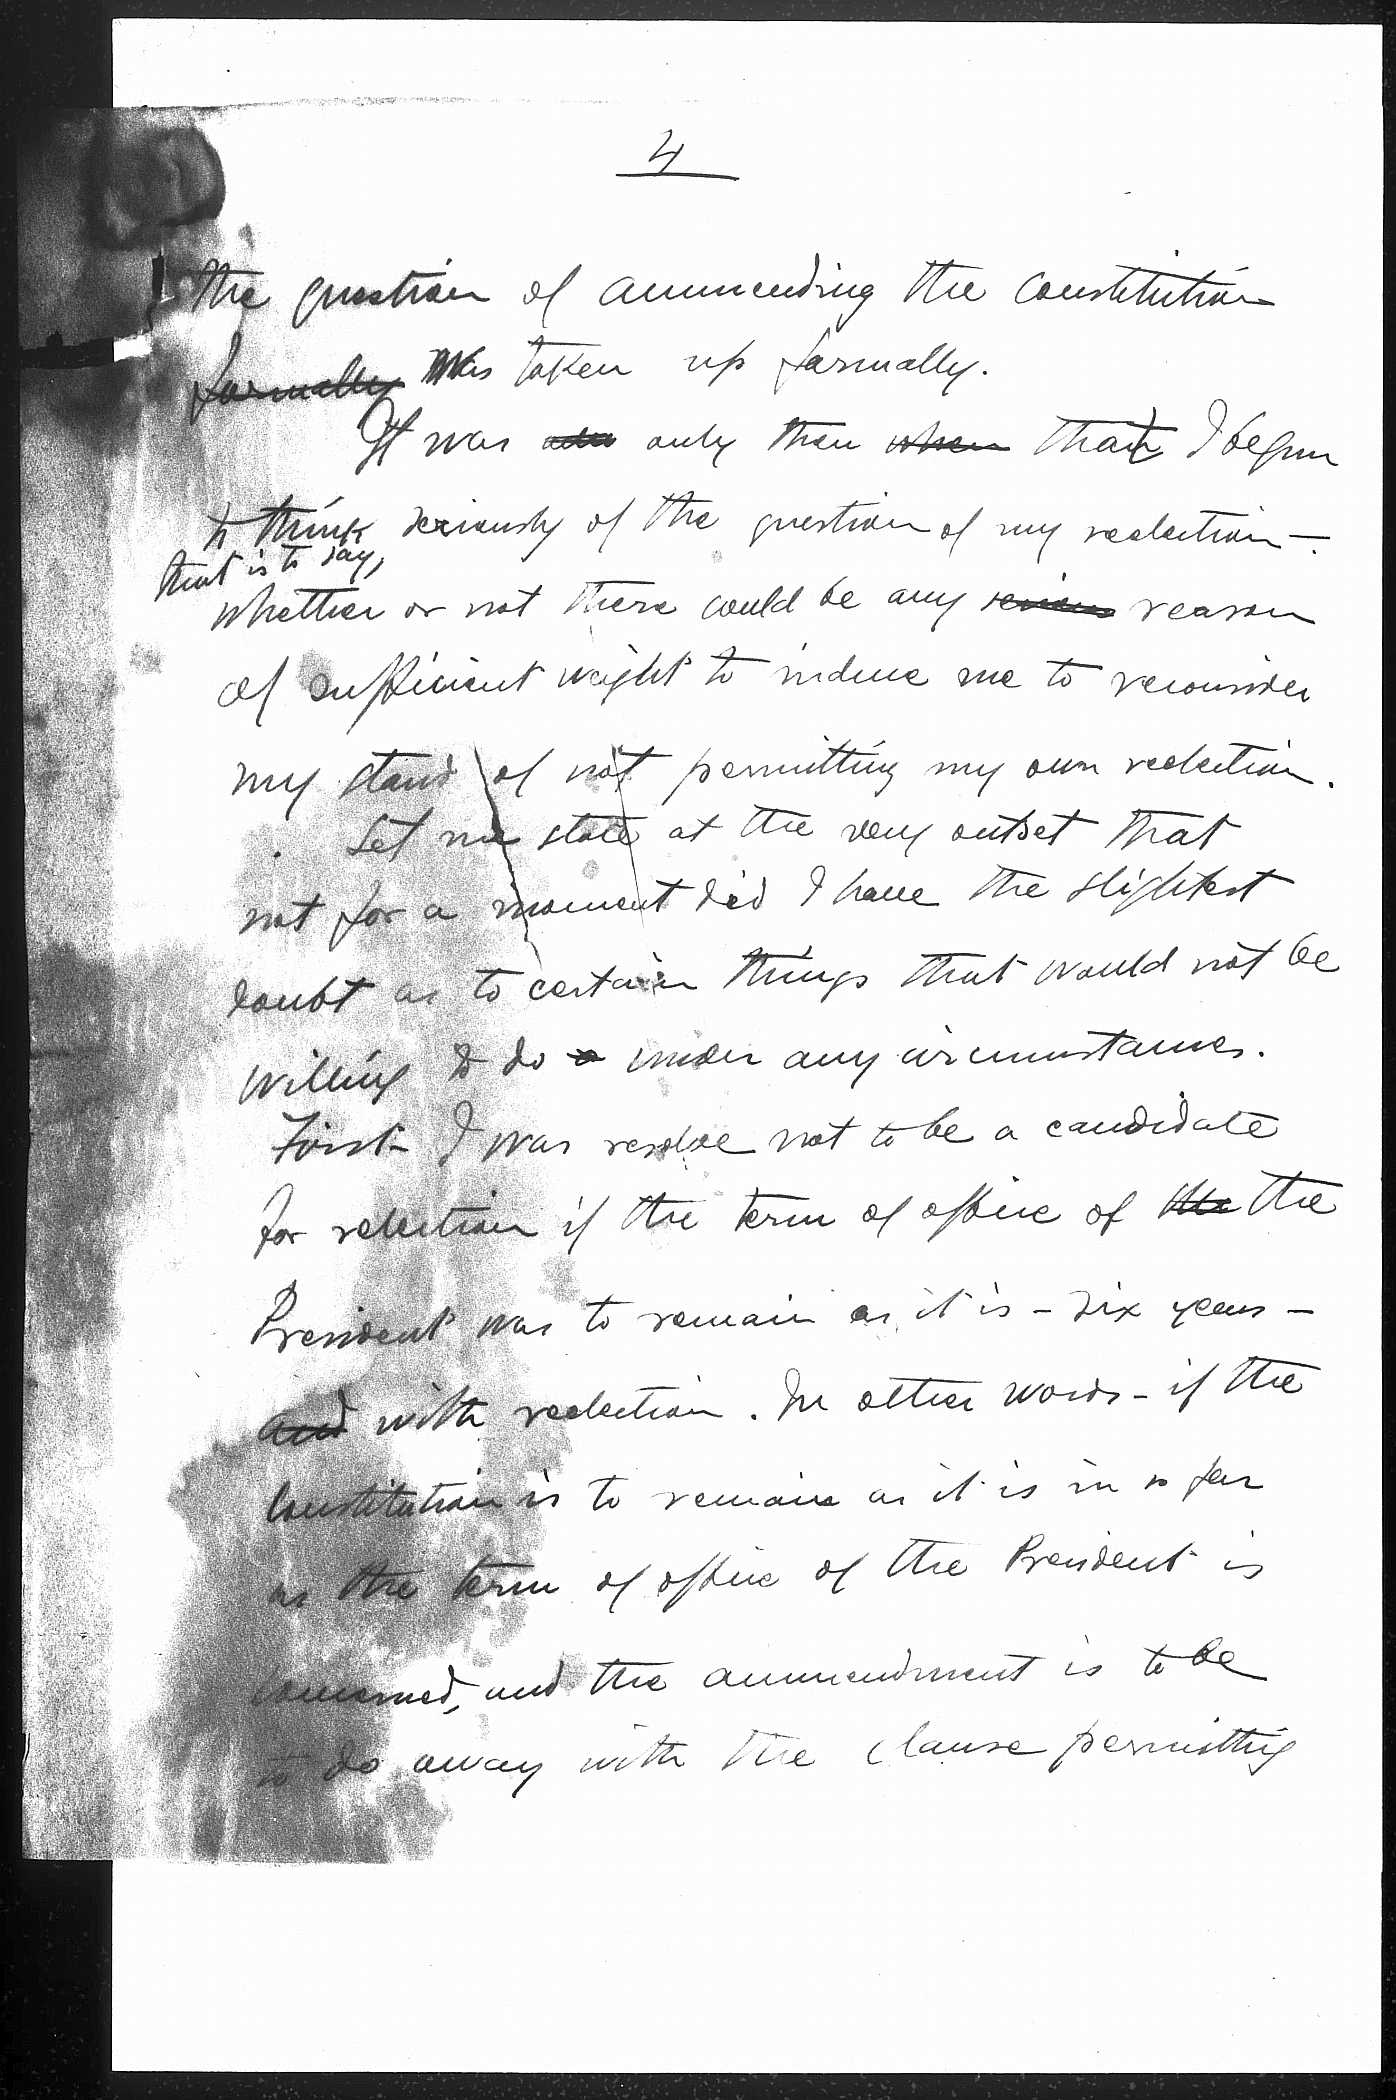 4
the question of ammending the Constitution
formally was taken up formally.
It was only then when that I begun
to think seriously of the question of my reelection —
that is to say,
whether or not there could be any serious reason
of sufficient weight to induce me to reconsider
my stand of not permitting my own reelection.
Let me state at the very outset that
not for a moment did I have the slightest
doubt as to certain things that would not be
willing to do a under any circumstances.
First I was resolve not to be a candidate
for relection if the term of office of the the
President was to remain as it is - six years -
and with reelection. In other words - if the
Constitution is to remain as it is in so far
as the term of office of the President is
concerned, and the ammendment is to be
to do away with the clause permitting